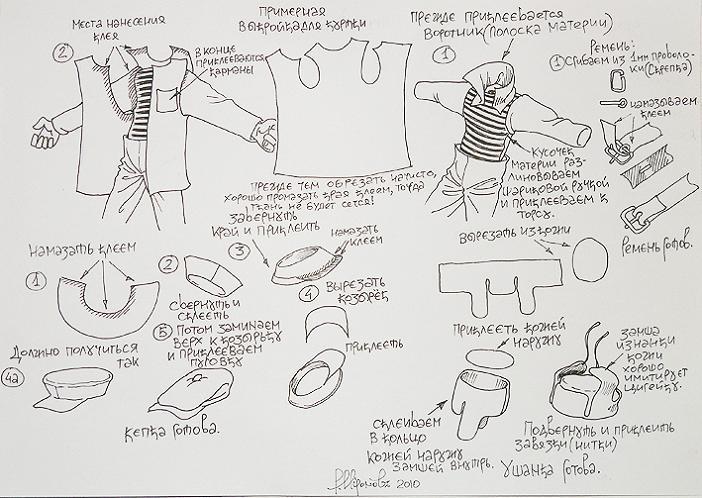 Места нанесения
клея
2
В конце
приклеиваются
карманы
Примерная
выкройка для куртки
Прежде приклеивается
воротник (полоска материи)
1
Ремень:
1 Сгибаем из 1мм проволо-
ки (скрепка)
намазываем
клеем
Кусочек
материи раз-
линовываем
шариковой ручкой
и приклеиваем к
торсу.
Ремень готов.
Прежде чем обрезать начисто,
хорошо промазать края клеем, тогда
ткань не будет сечься!
Завернуть
край и приклеить
3
намазать
клеем
Намазать клеем
1
2
Свернуть и
склеить
4 Вырезать
козырёк
Приклеить
5 Потом заминаем
верх к козырьку
и приклеиваем
пуговку
Должно получиться
так
4а
Кепка готова.
Вырезать из кожи
Приклеить кожей
наружу
Склеиваем
в кольцо
кожей наружу
замшей внутрь.
Замша
изнанки
кожи
хорошо
имитирует
цигейку.
Подвернуть и приклеить
завязки (нитки)
Ушанка готова.
2010